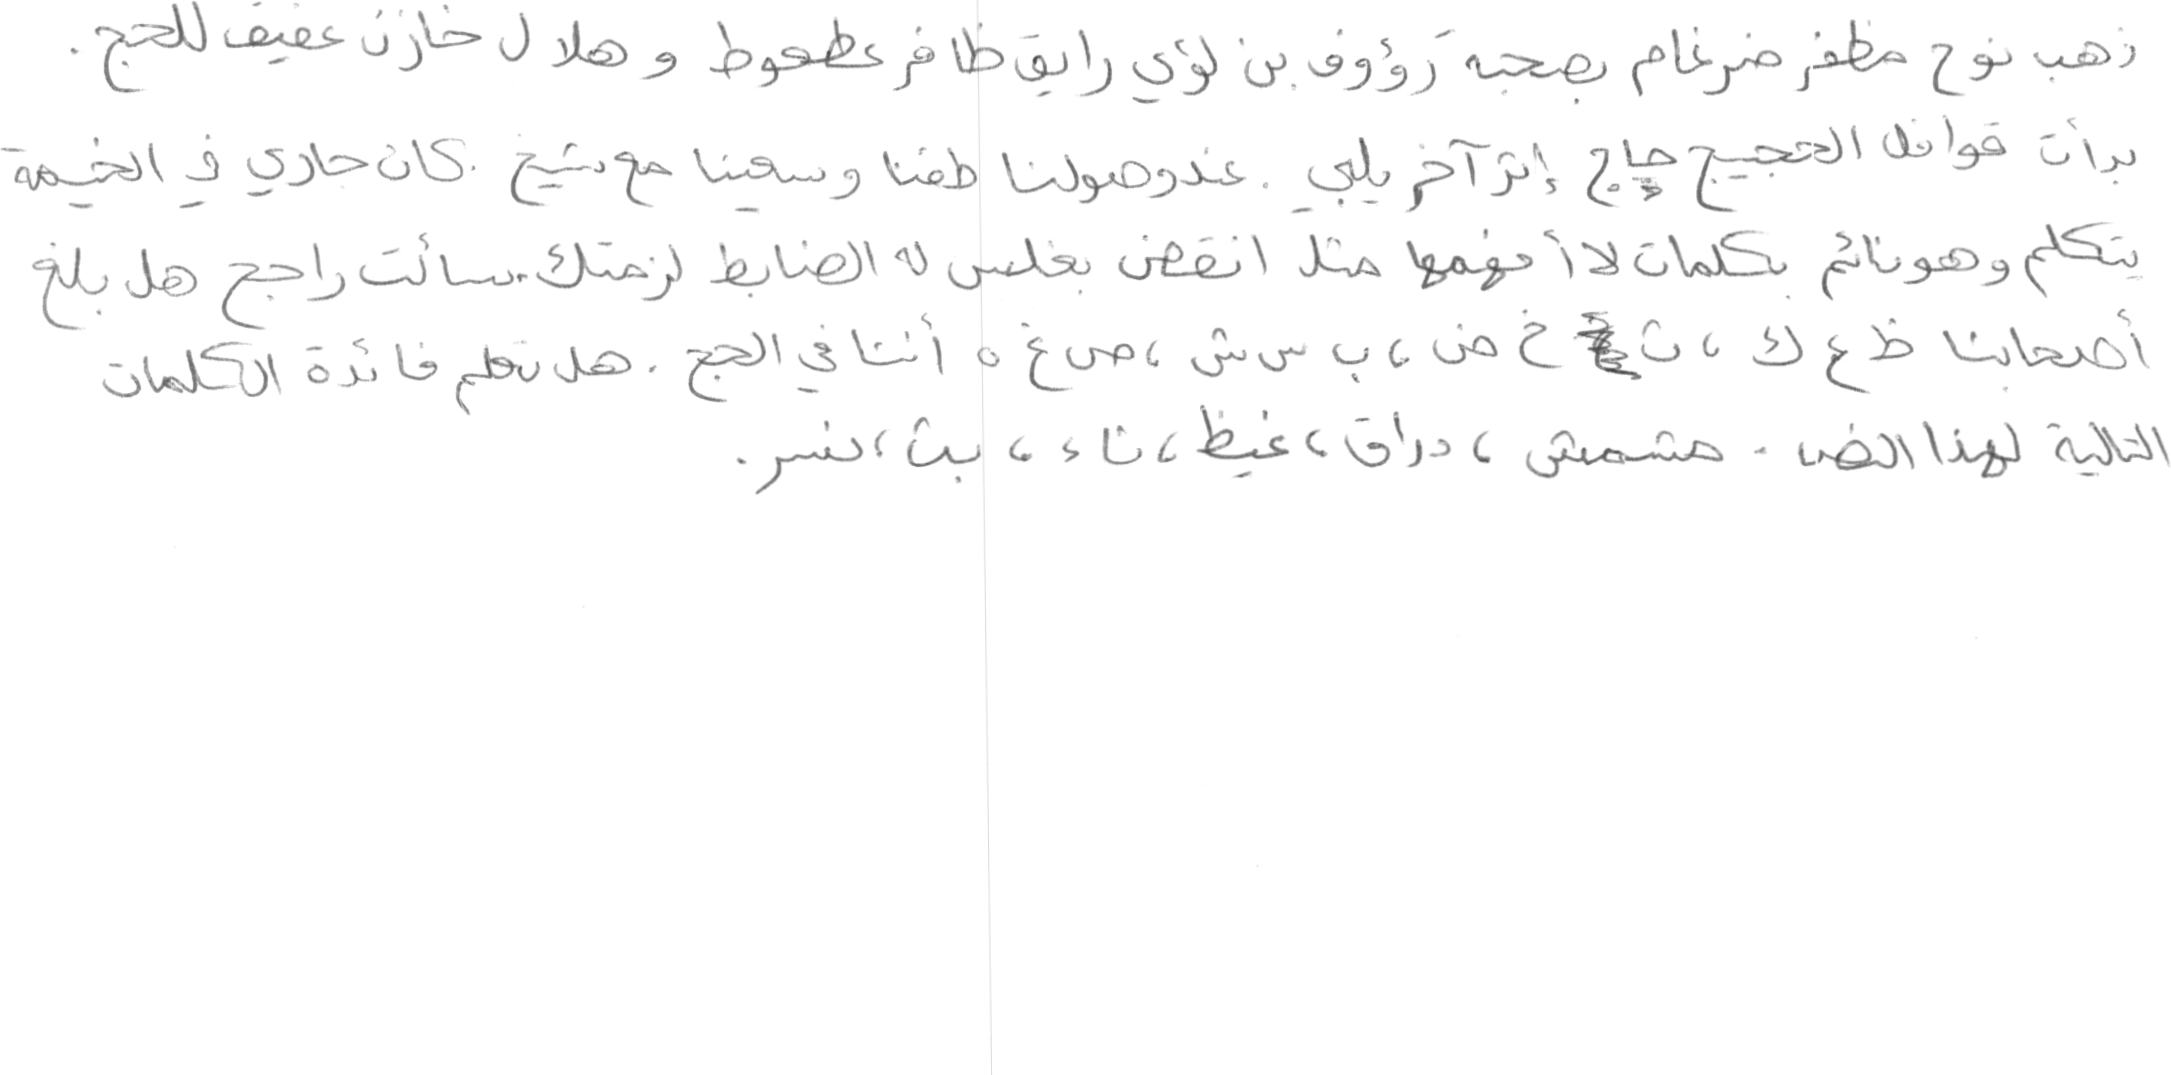 ذهب نوح مظفر ضرغام بصحبه رؤوف بن لؤي رايق ظافر عطعوط و هلال خازن عفيف للحج .
بدأت قوافل الحجيج حاج إثر آخر يلبي . عند وصولنا طفنا وسعينا مع شيخ . كان جاري في الخيمة
يتكلم وهو نائم بكلمات لا أفهمها مثل انقض بغلس له الضابط لزمتك . سألت راجح هل بلغ
أصحابنا ظ ع ك ، ث خ ض ، ب س ش ، ص غ ه أننا في الحج . هل تعلم فائدة الكلمات
التالية لهذا النص . مشمش ، دراق ، غيظ ، تاء ، بث ، نسر .